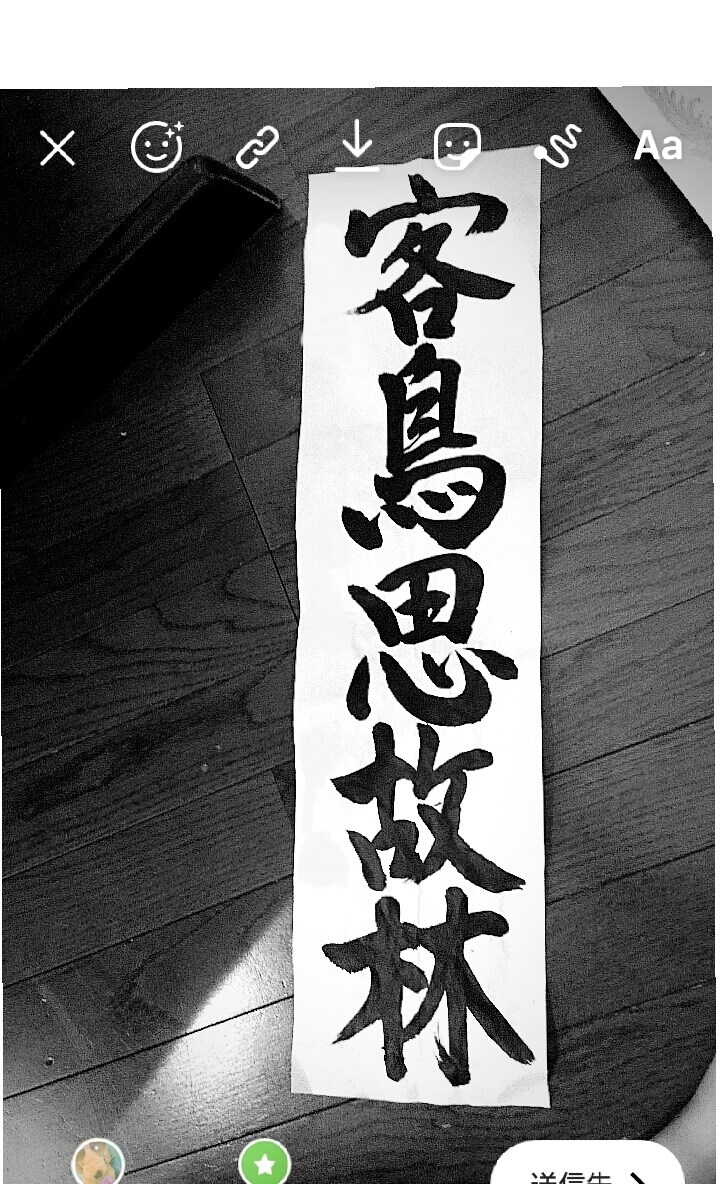 Aa
客鳥思故林
送信先